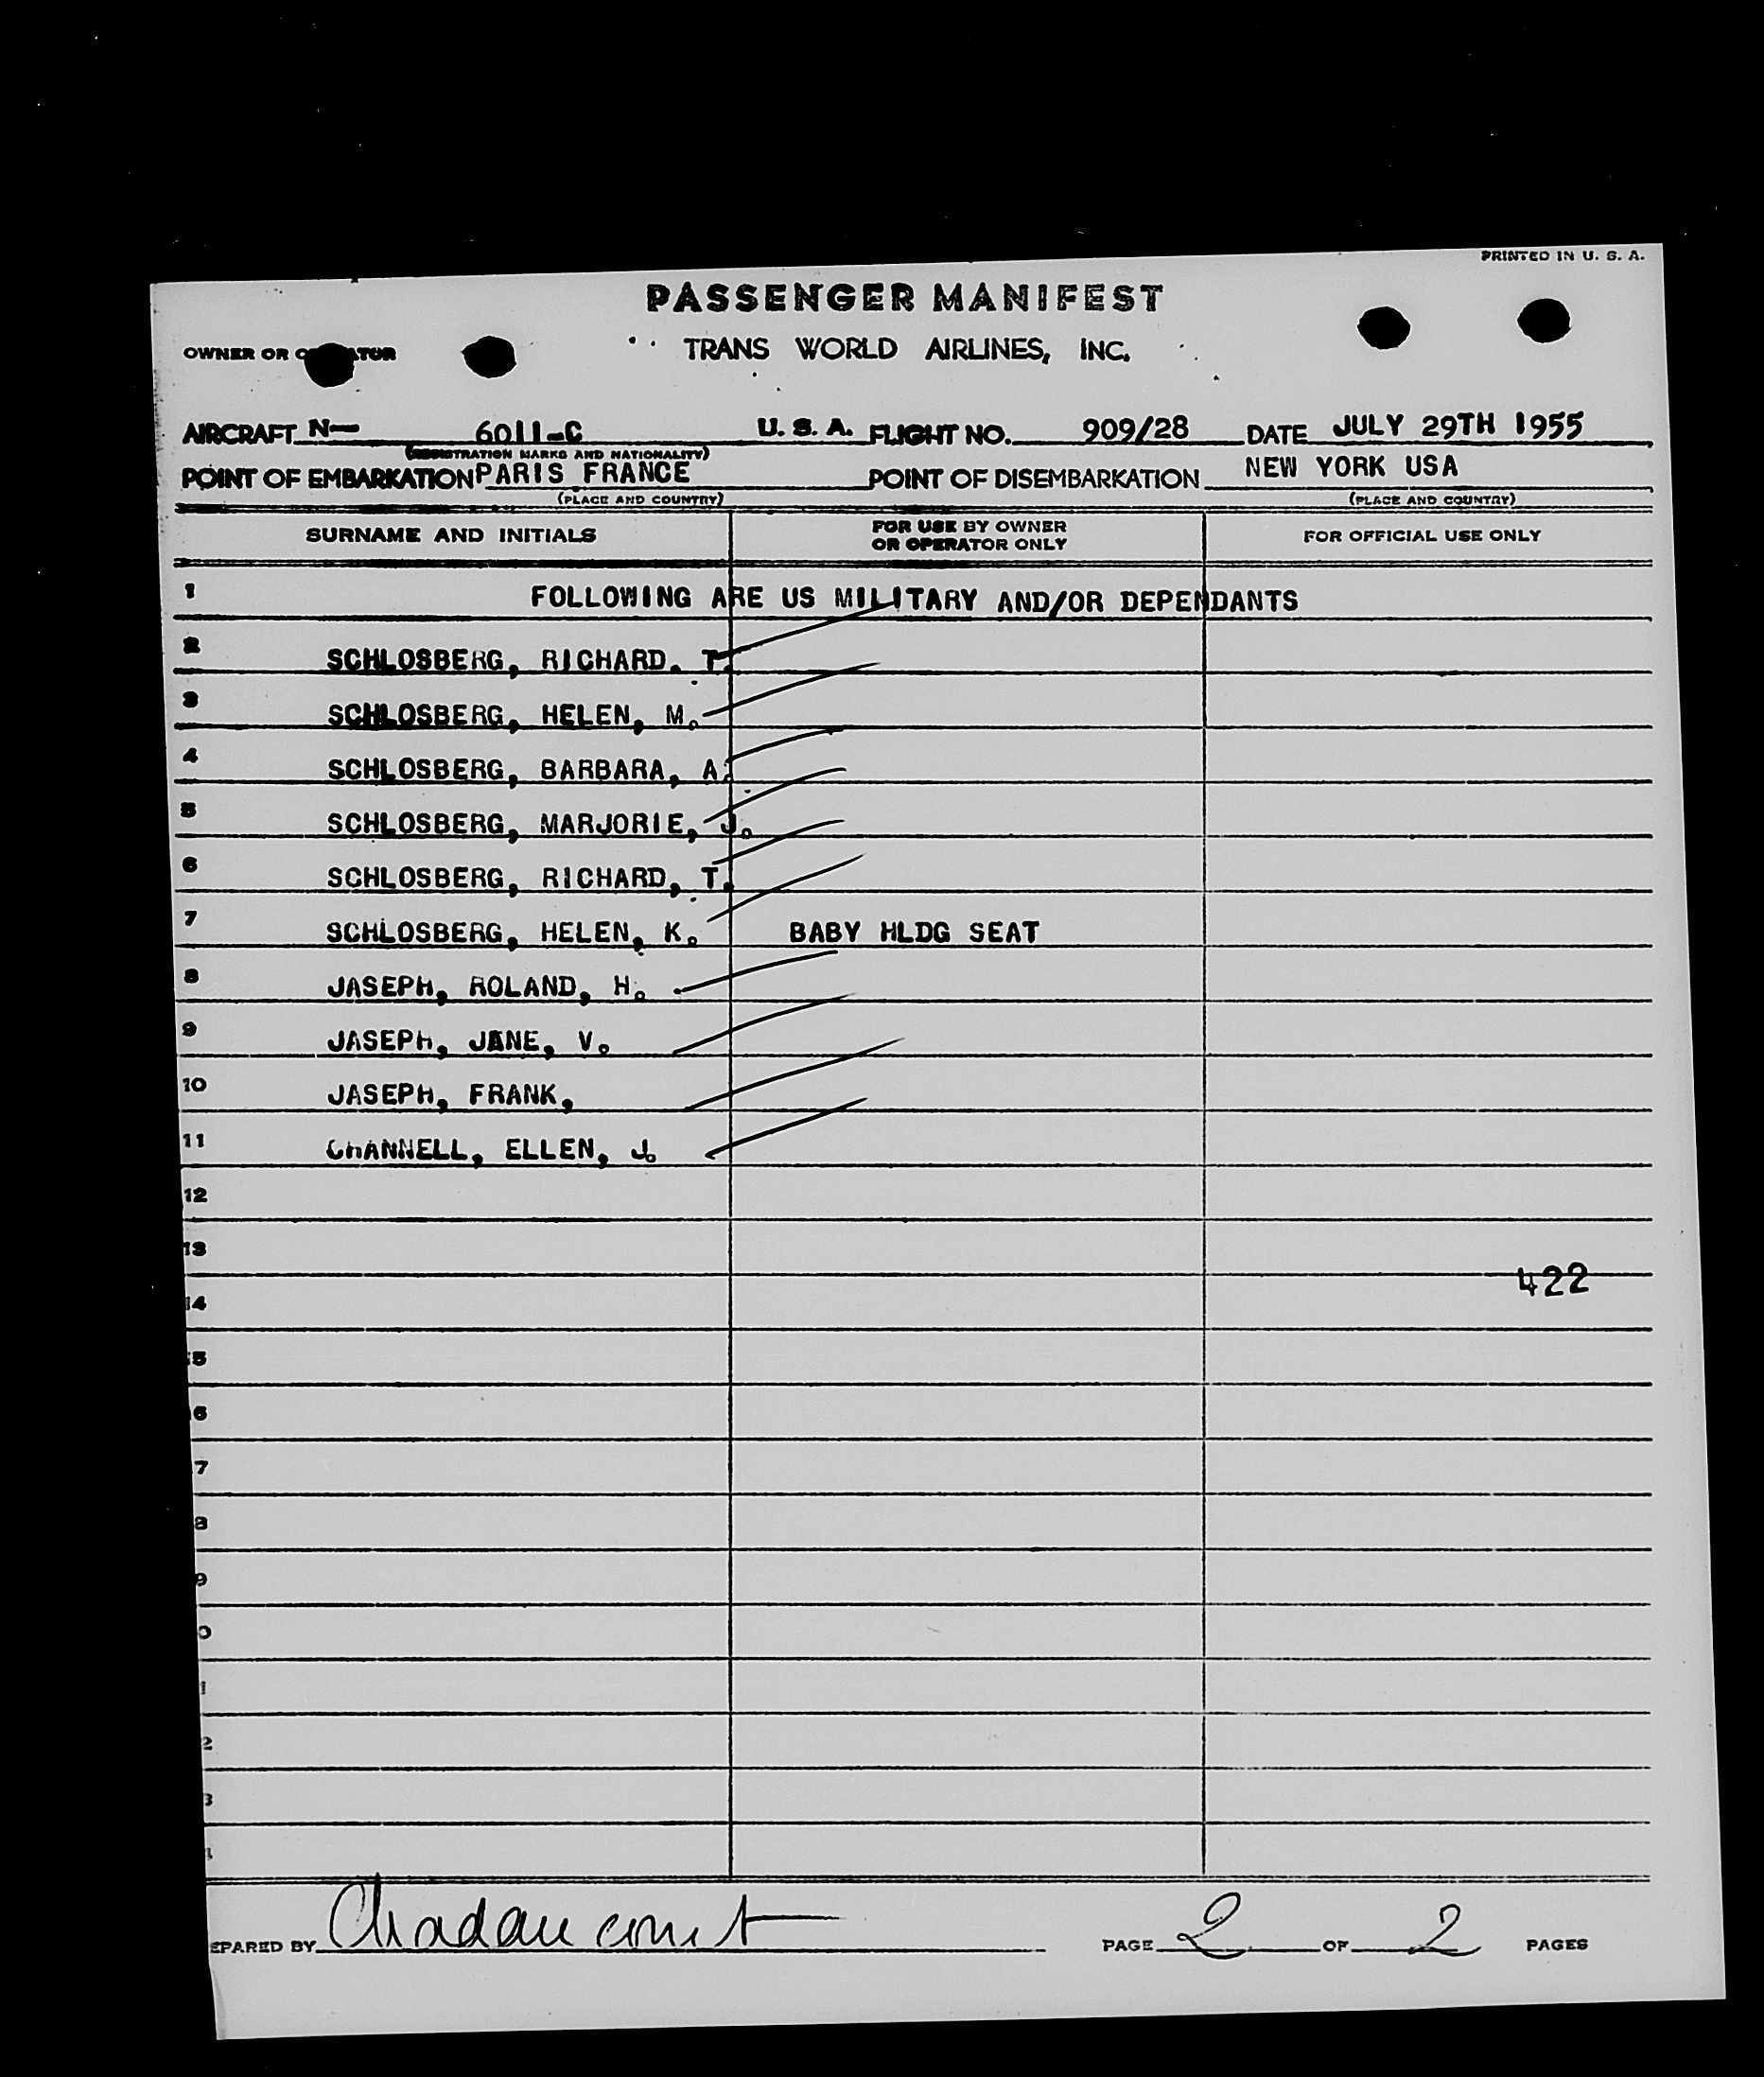 PRINTED IN U. S. A.
PASSENGER MANIFEST
OWNER OR TRANS WORLD AIRLINES, INC.
AIRCRAFT N— 6011-C U. S. A. FLIGHT NO. 909/28 DATE JULY 29TH 1955
(REGISTRATION MARKS AND NATIONALITY)
POINT OF EMBARKATION PARIS FRANCE POINT OF DISEMBARKATION NEW YORK USA
(PLACE AND COUNTRY) (PLACE AND COUNTRY)
SURNAME AND INITIALS FOR USE BY OWNER OR OPERATOR ONLY FOR OFFICIAL USE ONLY
1 FOLLOWING ARE US MILITARY AND/OR DEPENDANTS
2 SCHLOSBERG, RICHARD. T.
3 SCHLOSBERG, HELEN, M.
4 SCHLOSBERG, BARBARA, A.
5 SCHLOSBERG, MARJORIE, J.
6 SCHLOSBERG, RICHARD, T.
7 SCHLOSBERG, HELEN, K. BABY HLDG SEAT
8 JASEPH, ROLAND, H.
9 JASEPH, JANE, V.
10 JASEPH, FRANK,
11 CHANNELL, ELLEN, J.
12
13
422
14
5
6
7
8
9
0
1
2
3
EPARED BY PAGE 2 OF 2 PAGES